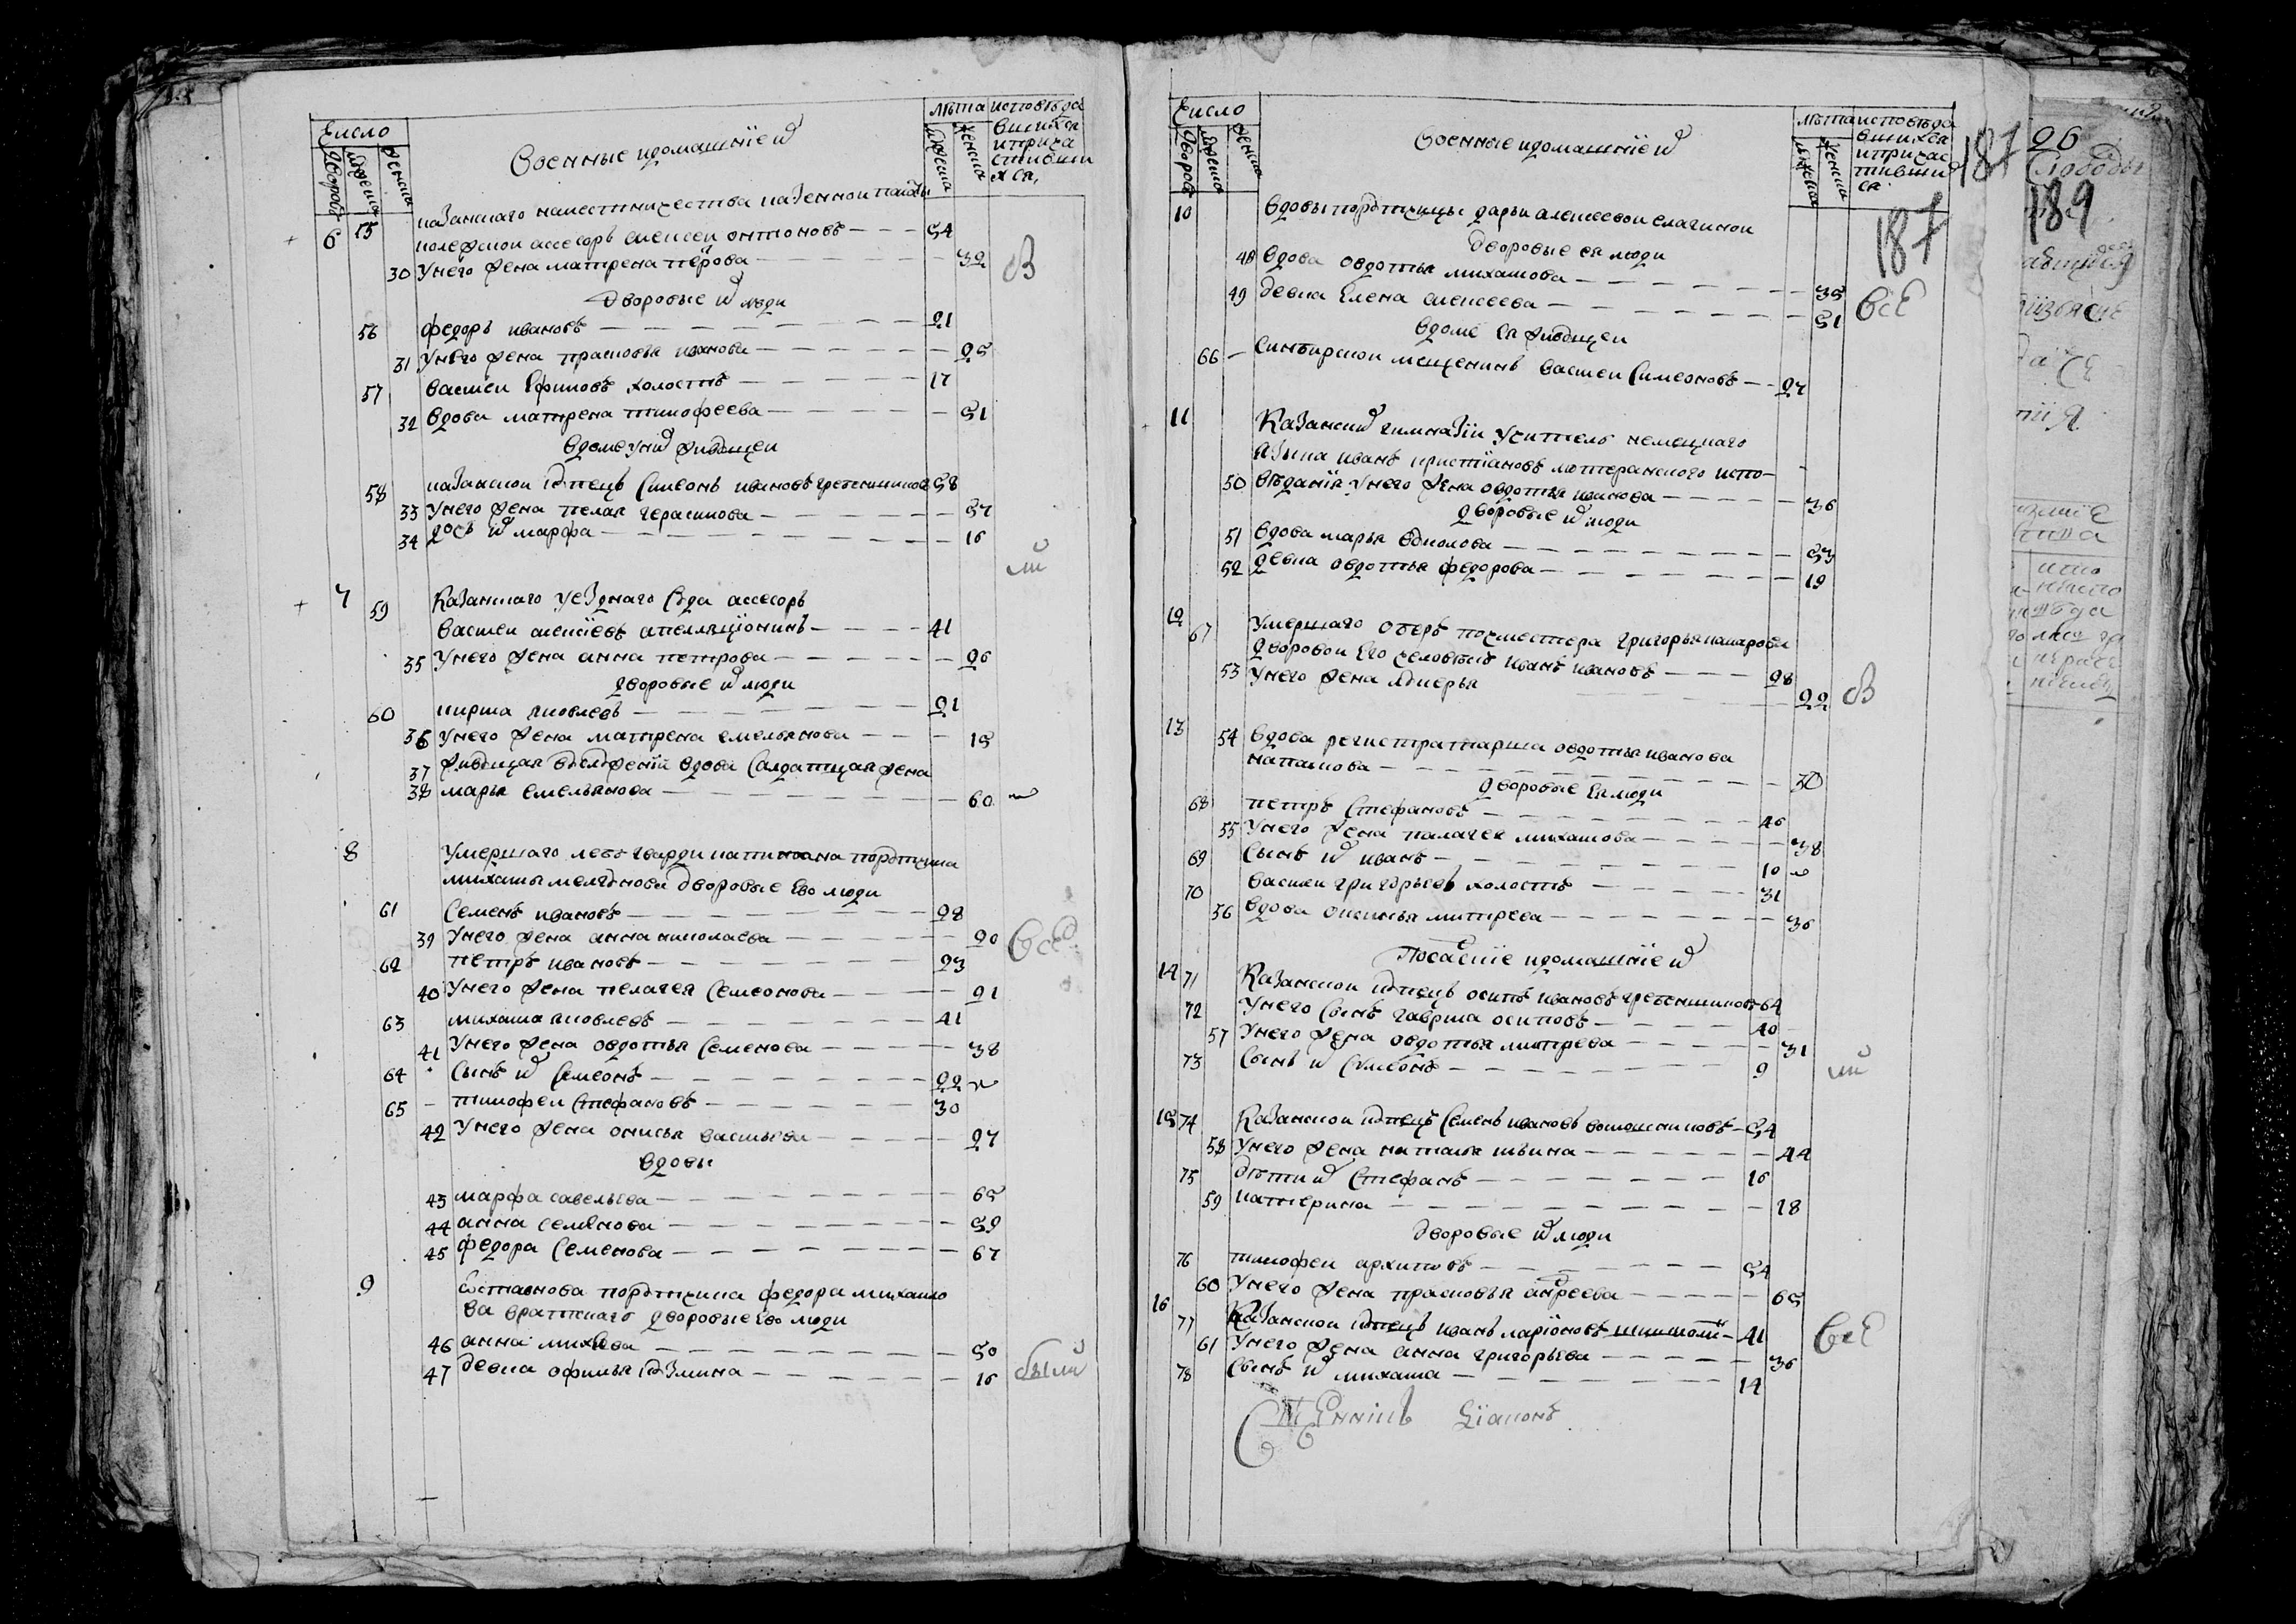 Число
Дворовъ Мужска Женска
Военные и домашнїе их
лѣта
Мужеска Женска
исповѣда
вшихся
и прича
стивши
хся,
казанскаго наместничества казенной палаты
6 55 колежской асесоръ алексеи онтоновъ — — — 54
30 У него жена матрена петрова — — — 32
дворовые их люди
56 федоръ ивановъ — — — 21
31 У него жена прасковья иванова — — — 25
57 васиlей Ефимовъ холостъ — — — 17
32 вдова матрена тимофеева — — — 51
в доме у них живущеи
58 казанской купецъ Симеонъ ивановъ гребенщиковъ 58
33 У него жена пелагея герасимова — — — 57
34 дочь их марфа — — — 16
7 59 Казанскаго уезднаго Суда асесоръ
василеи алексїевъ апелляцїонинъ — — — 41
35 У него жена анна петрова — — — 26
дворовые их люди
60 кирила яковлевъ — — — 21
36 У него жена матрена емельянова — — — 19
37 живущая в услужении вдова Салдатцкая жена
38 марья емельянова — — — 60
8 Умершаго леебъ гвардии капитана порутчика
михаилы мелгунова дворовые Ево люди
61 Семенъ ивановъ — — — 28
39 У него жена анна николаева — — — 20
всѣ
62 петръ ивановъ — — — 23
40 У него жена пелагея Семеонова — — — 21
63 михаила яковлевъ — — — 41
41 У него жена овдотья Семенова — — — 38
64 Сынъ их Симеонъ — — — 22
65 тимофеи Стефановъ — — — 30
42 У него жена онисья васильева — — — 27
вдовы
43 марфа савельева — — — 65
44 анна семёнова — — — 59
45 федора Семенова — — — 67
9 отставнова порутчика федора михаило
ва братскаго дворовые Ево люди
46 анна михаева — — — 50
47 девка офимья кузмина — — — 16
были
Число
Дворовъ Мужска Женска
Военные и домашнїе их
лѣта
Мужска Женска
исповѣда
вшихся
и причас
тивших
ся
187
187
10 вдовы порутчицы дарьи алексеевои елагиной
дворовые ея люди
48 вдова овдотья михаилова — — — 35
49 девка Елена алексеева — — — 51
всѣ
в доме ея живущеи
66 Синбирской мещенинъ василеи Симеоновъ — — 27
11 Казанских гимназїи учитель немецкаго
языка иванъ кристїановъ лютеранского испо-
50 вѣданїя у него жена овдотья иванова — — — 36
дворовые их люди
51 вдова марья вуколова — — — 53
52 девка овдотья федорова — — — 19
12 67 Умершаго оберъ почместера григорья макарова
дворовои Его человѣкъ иванъ ивановъ — — — 28
53 У него жена лукерья — — 22
13 54 вдова регистраторша овдотья иванова
напалкова — — — 30
дворовые ея люди
68 петръ Стефановъ — — — 46
55 У него жена палагея михаилова — — — 38
69 Сынъ их иванъ — — — 10
70 василеи григорьевъ холостъ — — — 31
56 вдова оксинья митрева — — — 36
Посацкїе и домашнїе их
14 71 Казанской купецъ осипъ ивановъ гребенщиковъ 64
72 У него Сынъ гаврила осиповъ — — — 40
57 У него жена овдотья митрева — — — 31
73 Сынъ их Симеонъ — — — 9
15 74 Казанской купецъ Семенъ ивановъ вошесниковъ — 54
58 У него жена наталья ильина — — — 44
75 дѣти их Стефанъ — — — 16
59 катерина — — — 18
дворовые их люди
76 тимофеи архиповъ — — — 54
60 У него жена прасковья андреева — — — 65
16 77 Казанской купецъ иванъ ларїоновъ — 41
61 У него жена анна григорьева — — — 36
78 Сынъ их михаила — — — 14
всѣ
дїаконъ
26
Слободы
189